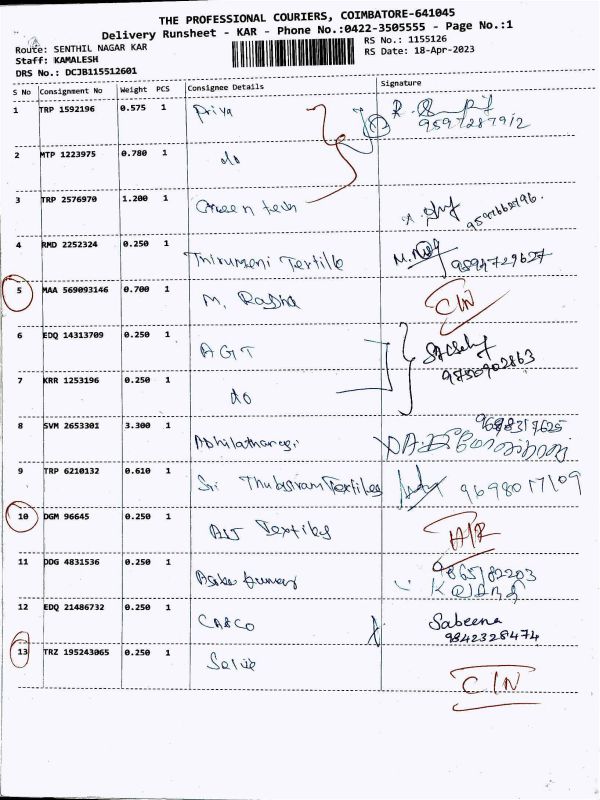 THE PROFESSIONAL COURIERS, COIMBATORE-641045
Delivery Runsheet - KAR - Phone No.:0422-3505555 - Page No.:1
Route: SENTHIL NAGAR KAR
RS No.: 1155126
Staff: KAMALESH
RS Date: 18-Apr-2023
DRS No.: DCJB115512601
S No Consignment No Weight PCS Consignee Details Signature
1 TRP 1592196 0.575 1 Priya
9597287912
2 MTP 1223975 0.780 1 do
3 TRP 2576970 1.200 1 Green tech
4 RMD 2252324 0.250 1 Thirumeni Textille
9894729627
5 MAA 569093146 0.700 1 M. Radha C/N
6 EDQ 14313709 0.250 1 AGT
9750902863
7 KRR 1253196 0.250 1 do
8 SVM 2653301 3.300 1
9698317625
9 TRP 6210132 0.610 1 Sri Textiles 9698017109
10 DGM 96645 0.250 1 Textiles
11 DDG 4831536 0.250 1
9865782203
12 EDQ 21486732 0.250 1 CASCO Sabeena
9842328474
13 TRZ 195243065 0.250 1 Selvi C/N